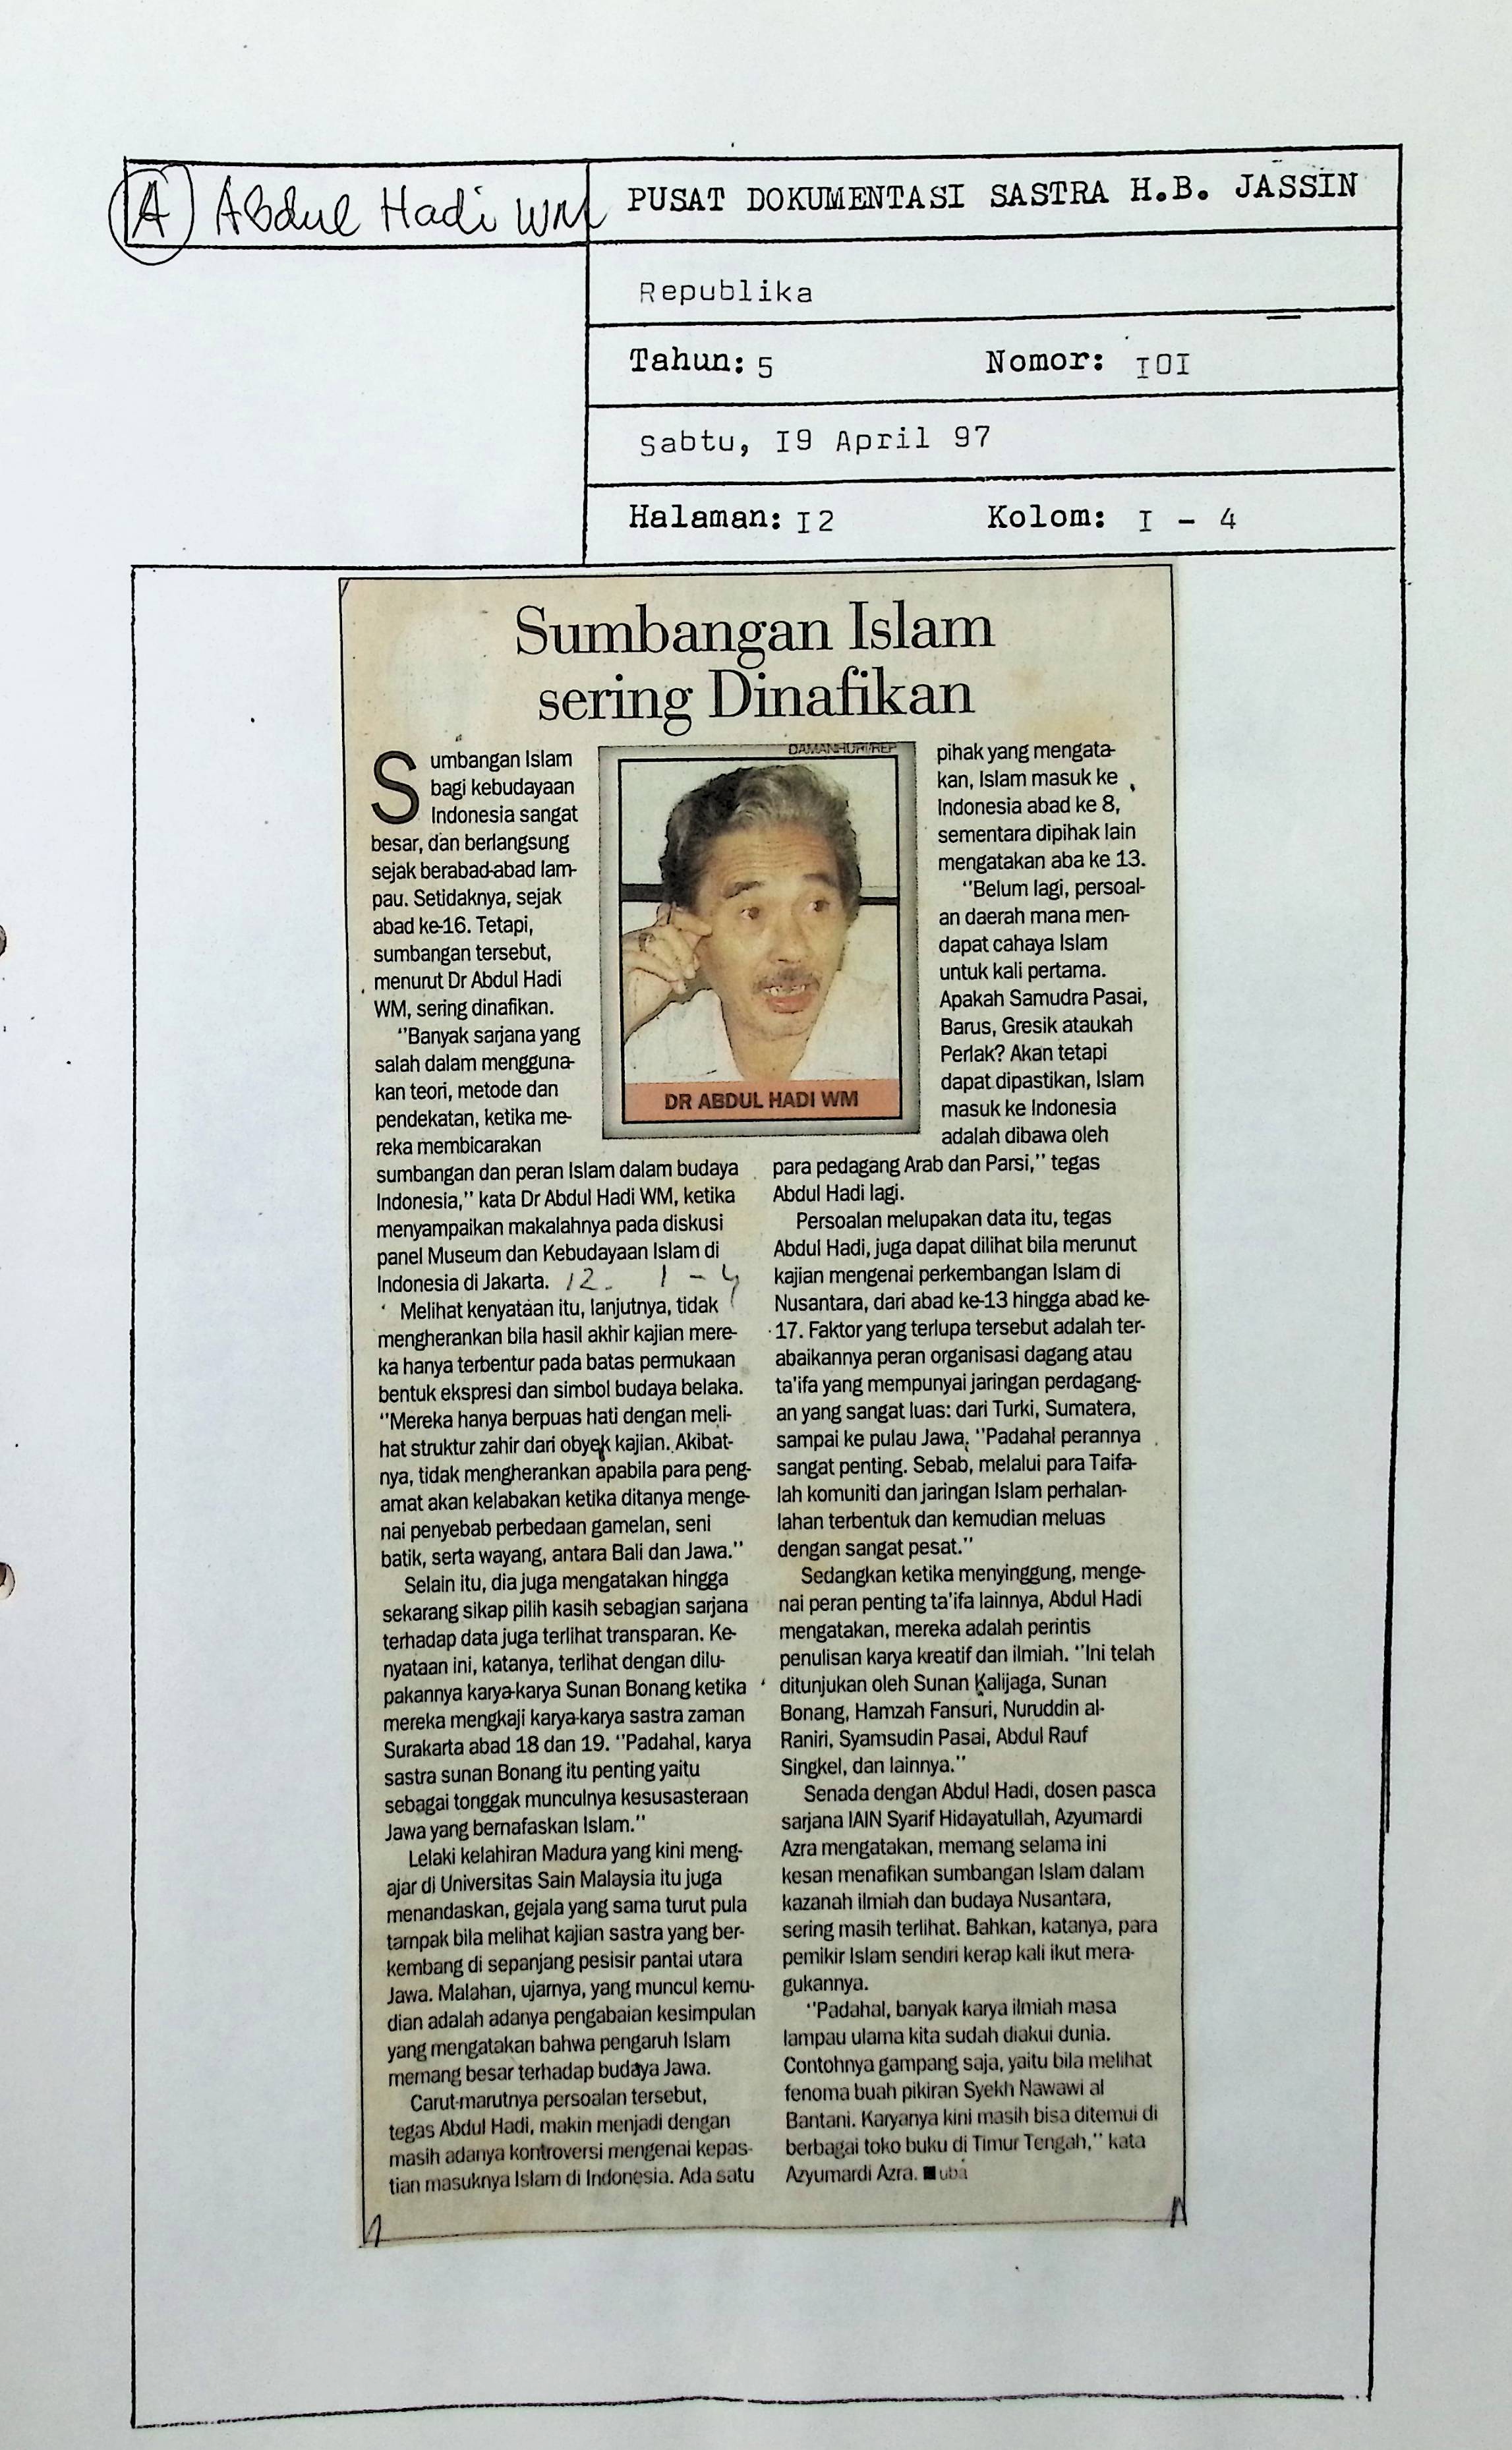 A Abdul Hadi WM
PUSAT DOKUMENTASI SASTRA H.B. JASSIN
Republika
Tahun: 5 Nomor: IOI
Sabtu, I9 April 97
Halaman: I2 Kolom: I - 4
Sumbangan Islam
sering Dinafikan
Sumbangan Islam
bagi kebudayaan
Indonesia sangat
besar, dan berlangsung
sejak berabad-abad lam-
pau. Setidaknya, sejak
abad ke-16. Tetapi,
sumbangan tersebut,
menurut Dr Abdul Hadi
WM, sering dinafikan.
''Banyak sarjana yang
salah dalam mengguna-
kan teori, metode dan
pendekatan, ketika me-
reka membicarakan
sumbangan dan peran Islam dalam budaya
Indonesia,'' kata Dr Abdul Hadi WM, ketika
menyampaikan makalahnya pada diskusi
panel Museum dan Kebudayaan Islam di
Indonesia di Jakarta. 12. 1 - 4
Melihat kenyataan itu, lanjutnya, tidak
mengherankan bila hasil akhir kajian mere-
ka hanya terbentur pada batas permukaan
bentuk ekspresi dan simbol budaya belaka.
''Mereka hanya berpuas hati dengan meli-
hat struktur zahir dari obyek kajian. Akibat-
nya, tidak mengherankan apabila para peng-
amat akan kelabakan ketika ditanya menge-
nai penyebab perbedaan gamelan, seni
batik, serta wayang, antara Bali dan Jawa.''
Selain itu, dia juga mengatakan hingga
sekarang sikap pilih kasih sebagian sarjana
terhadap data juga terlihat transparan. Ke-
nyataan ini, katanya, terlihat dengan dilu-
pakannya karya-karya Sunan Bonang ketika
mereka mengkaji karya-karya sastra zaman
Surakarta abad 18 dan 19. ''Padahal, karya
sastra sunan Bonang itu penting yaitu
sebagai tonggak munculnya kesusasteraan
Jawa yang bernafaskan Islam.''
Lelaki kelahiran Madura yang kini meng-
ajar di Universitas Sain Malaysia itu juga
menandaskan, gejala yang sama turut pula
tampak bila melihat kajian sastra yang ber-
kembang di sepanjang pesisir pantai utara
Jawa. Malahan, ujarnya, yang muncul kemu-
dian adalah adanya pengabaian kesimpulan
yang mengatakan bahwa pengaruh Islam
memang besar terhadap budaya Jawa.
Carut-marutnya persoalan tersebut,
tegas Abdul Hadi, makin menjadi dengan
masih adanya kontroversi mengenai kepas-
tian masuknya Islam di Indonesia. Ada satu
DAMANHURI/REP
DR ABDUL HADI WM
pihak yang mengata-
kan, Islam masuk ke
Indonesia abad ke 8,
sementara dipihak lain
mengatakan aba ke 13.
''Belum lagi, persoal-
an daerah mana men-
dapat cahaya Islam
untuk kali pertama.
Apakah Samudra Pasai,
Barus, Gresik ataukah
Perlak? Akan tetapi
dapat dipastikan, Islam
masuk ke Indonesia
adalah dibawa oleh
para pedagang Arab dan Parsi,'' tegas
Abdul Hadi lagi.
Persoalan melupakan data itu, tegas
Abdul Hadi, juga dapat dilihat bila merunut
kajian mengenai perkembangan Islam di
Nusantara, dari abad ke-13 hingga abad ke-
17. Faktor yang terlupa tersebut adalah ter-
abaikannya peran organisasi dagang atau
ta'ifa yang mempunyai jaringan perdagang-
an yang sangat luas: dari Turki, Sumatera,
sampai ke pulau Jawa. ''Padahal perannya
sangat penting. Sebab, melalui para Taifa-
lah komuniti dan jaringan Islam perhalan-
lahan terbentuk dan kemudian meluas
dengan sangat pesat.''
Sedangkan ketika menyinggung, menge-
nai peran penting ta'ifa lainnya, Abdul Hadi
mengatakan, mereka adalah perintis
penulisan karya kreatif dan ilmiah. ''Ini telah
ditunjukan oleh Sunan Kalijaga, Sunan
Bonang, Hamzah Fansuri, Nuruddin al-
Raniri, Syamsudin Pasai, Abdul Rauf
Singkel, dan lainnya.''
Senada dengan Abdul Hadi, dosen pasca
sarjana IAIN Syarif Hidayatullah, Azyumardi
Azra mengatakan, memang selama ini
kesan menafikan sumbangan Islam dalam
kazanah ilmiah dan budaya Nusantara,
sering masih terlihat. Bahkan, katanya, para
pemikir Islam sendiri kerap kali ikut mera-
gukannya.
''Padahal, banyak karya ilmiah masa
lampau ulama kita sudah diakui dunia.
Contohnya gampang saja, yaitu bila melihat
fenoma buah pikiran Syekh Nawawi al
Bantani. Karyanya kini masih bisa ditemui di
berbagai toko buku di Timur Tengah,'' kata
Azyumardi Azra. ■ uba